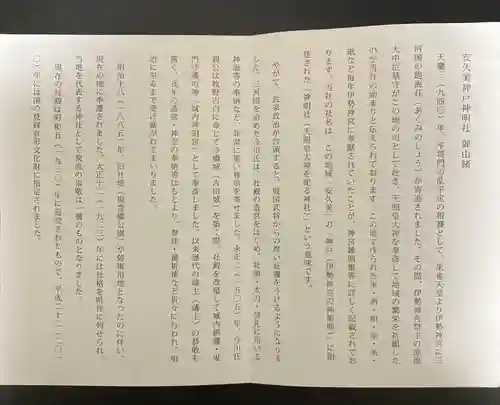 安久美神戸神明社 御由緒
天慶三(九四〇)年、平将門の乱平定の報賽として、朱雀天皇より伊勢神宮に三
河国の飽海荘(あくみのしょう)が寄進されました。その間、伊勢神宮祭主の
大中臣基守がこの地の司として赴き、天照皇大神を奉斎して地域の繁栄を祈願した
のが当社の始まりと伝えられております。この地で作られた米・酒・
紙など毎年伊勢神宮に奉献されていたことが、神宮雑例集等に詳しく記載されてお
ります。当社の社名は、この地域(安久美)の「神戸(伊勢神宮の御領地)」に
座された「神明社(天照皇大神を祀る神社)」という意味です。
やがて、武家政治が台頭すると、戦国武将からの厚い社護をうけるようになりま
した。三河国を治めた今川氏は、社殿の造営をはじめ、社領・太刀・祭具に用いる
神面等の奉納など、非常に篤い尊崇を寄せました。永正二(一五〇五)年、今川氏
親公は牧野古白に命じて今橋城(吉田城)を築く際、社殿を改築して城内鎮護・鬼
門守護の神(城内神明宮)として奉斎しました。以来歴代の城主(藩主)の恭敬も
篤く、式年の造営・神宝の奉納等はもとより、祭祥・国祈祷など折々に行われ、明
治に至るまで受け継がれてまいりました。
明治十八(一八八五)年、旧社地(現豊橋公園)が陸軍用地となったのに伴い、
現在の地に奉遷されました。大正十二(一九二三)年には社格を県社に列せられ、
当地を代表する神社として衆庶の崇敬は一層のものとなりました。
現在の社殿は昭和五(一九三〇)年に造営されたもので、平成二十二(二〇一
〇)年には国の登録有形文化財に指定されました。